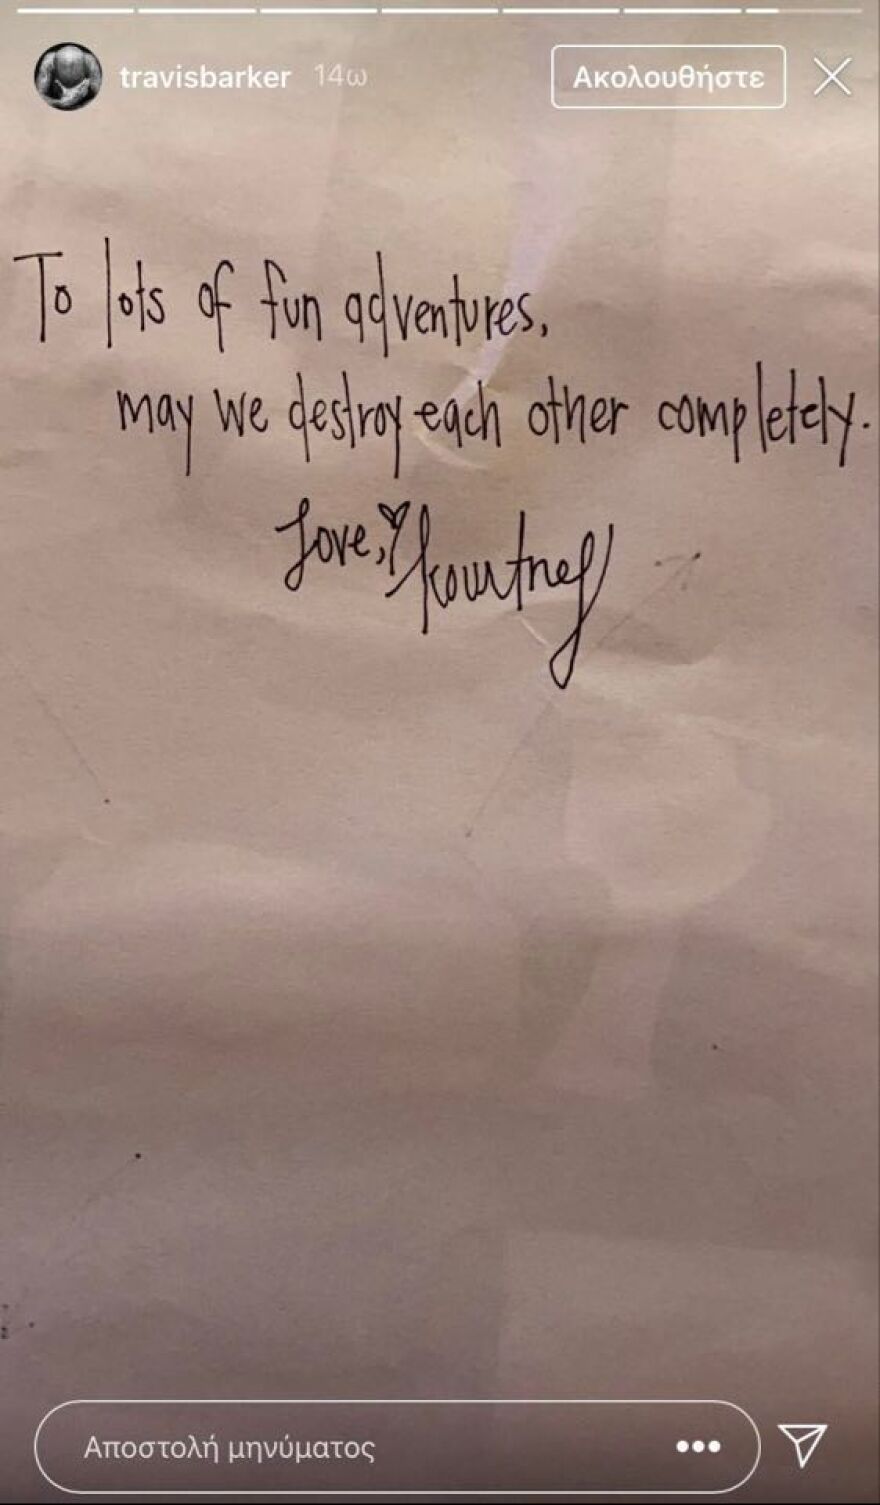 travisbarker 14ω Ακολουθήστε
To lots of fun adventures,
may we destroy each other completely.
Love, kourtney
Αποστολή μηνύματος